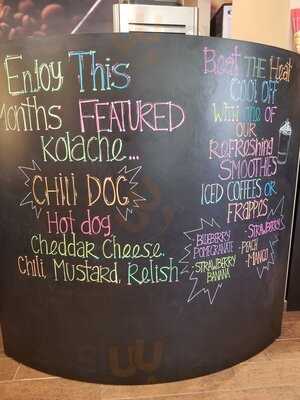 Enjoy This
Months FEATURED
Kolache...
CHILI DOG
Hot dog,
Cheddar Cheese,
Chili, Mustard, Relish
Beat THE Heat
COOL OFF
WITH ONE OF
OUR
ReFRESHING
SMOOTHIES
ICED COFFEES OR
FRAPPOS
-BLUEBERRY
POMEGRANATE
-STRAWBERRY
BANANA
-STRAWBERRY
-PEACH
-MANGO